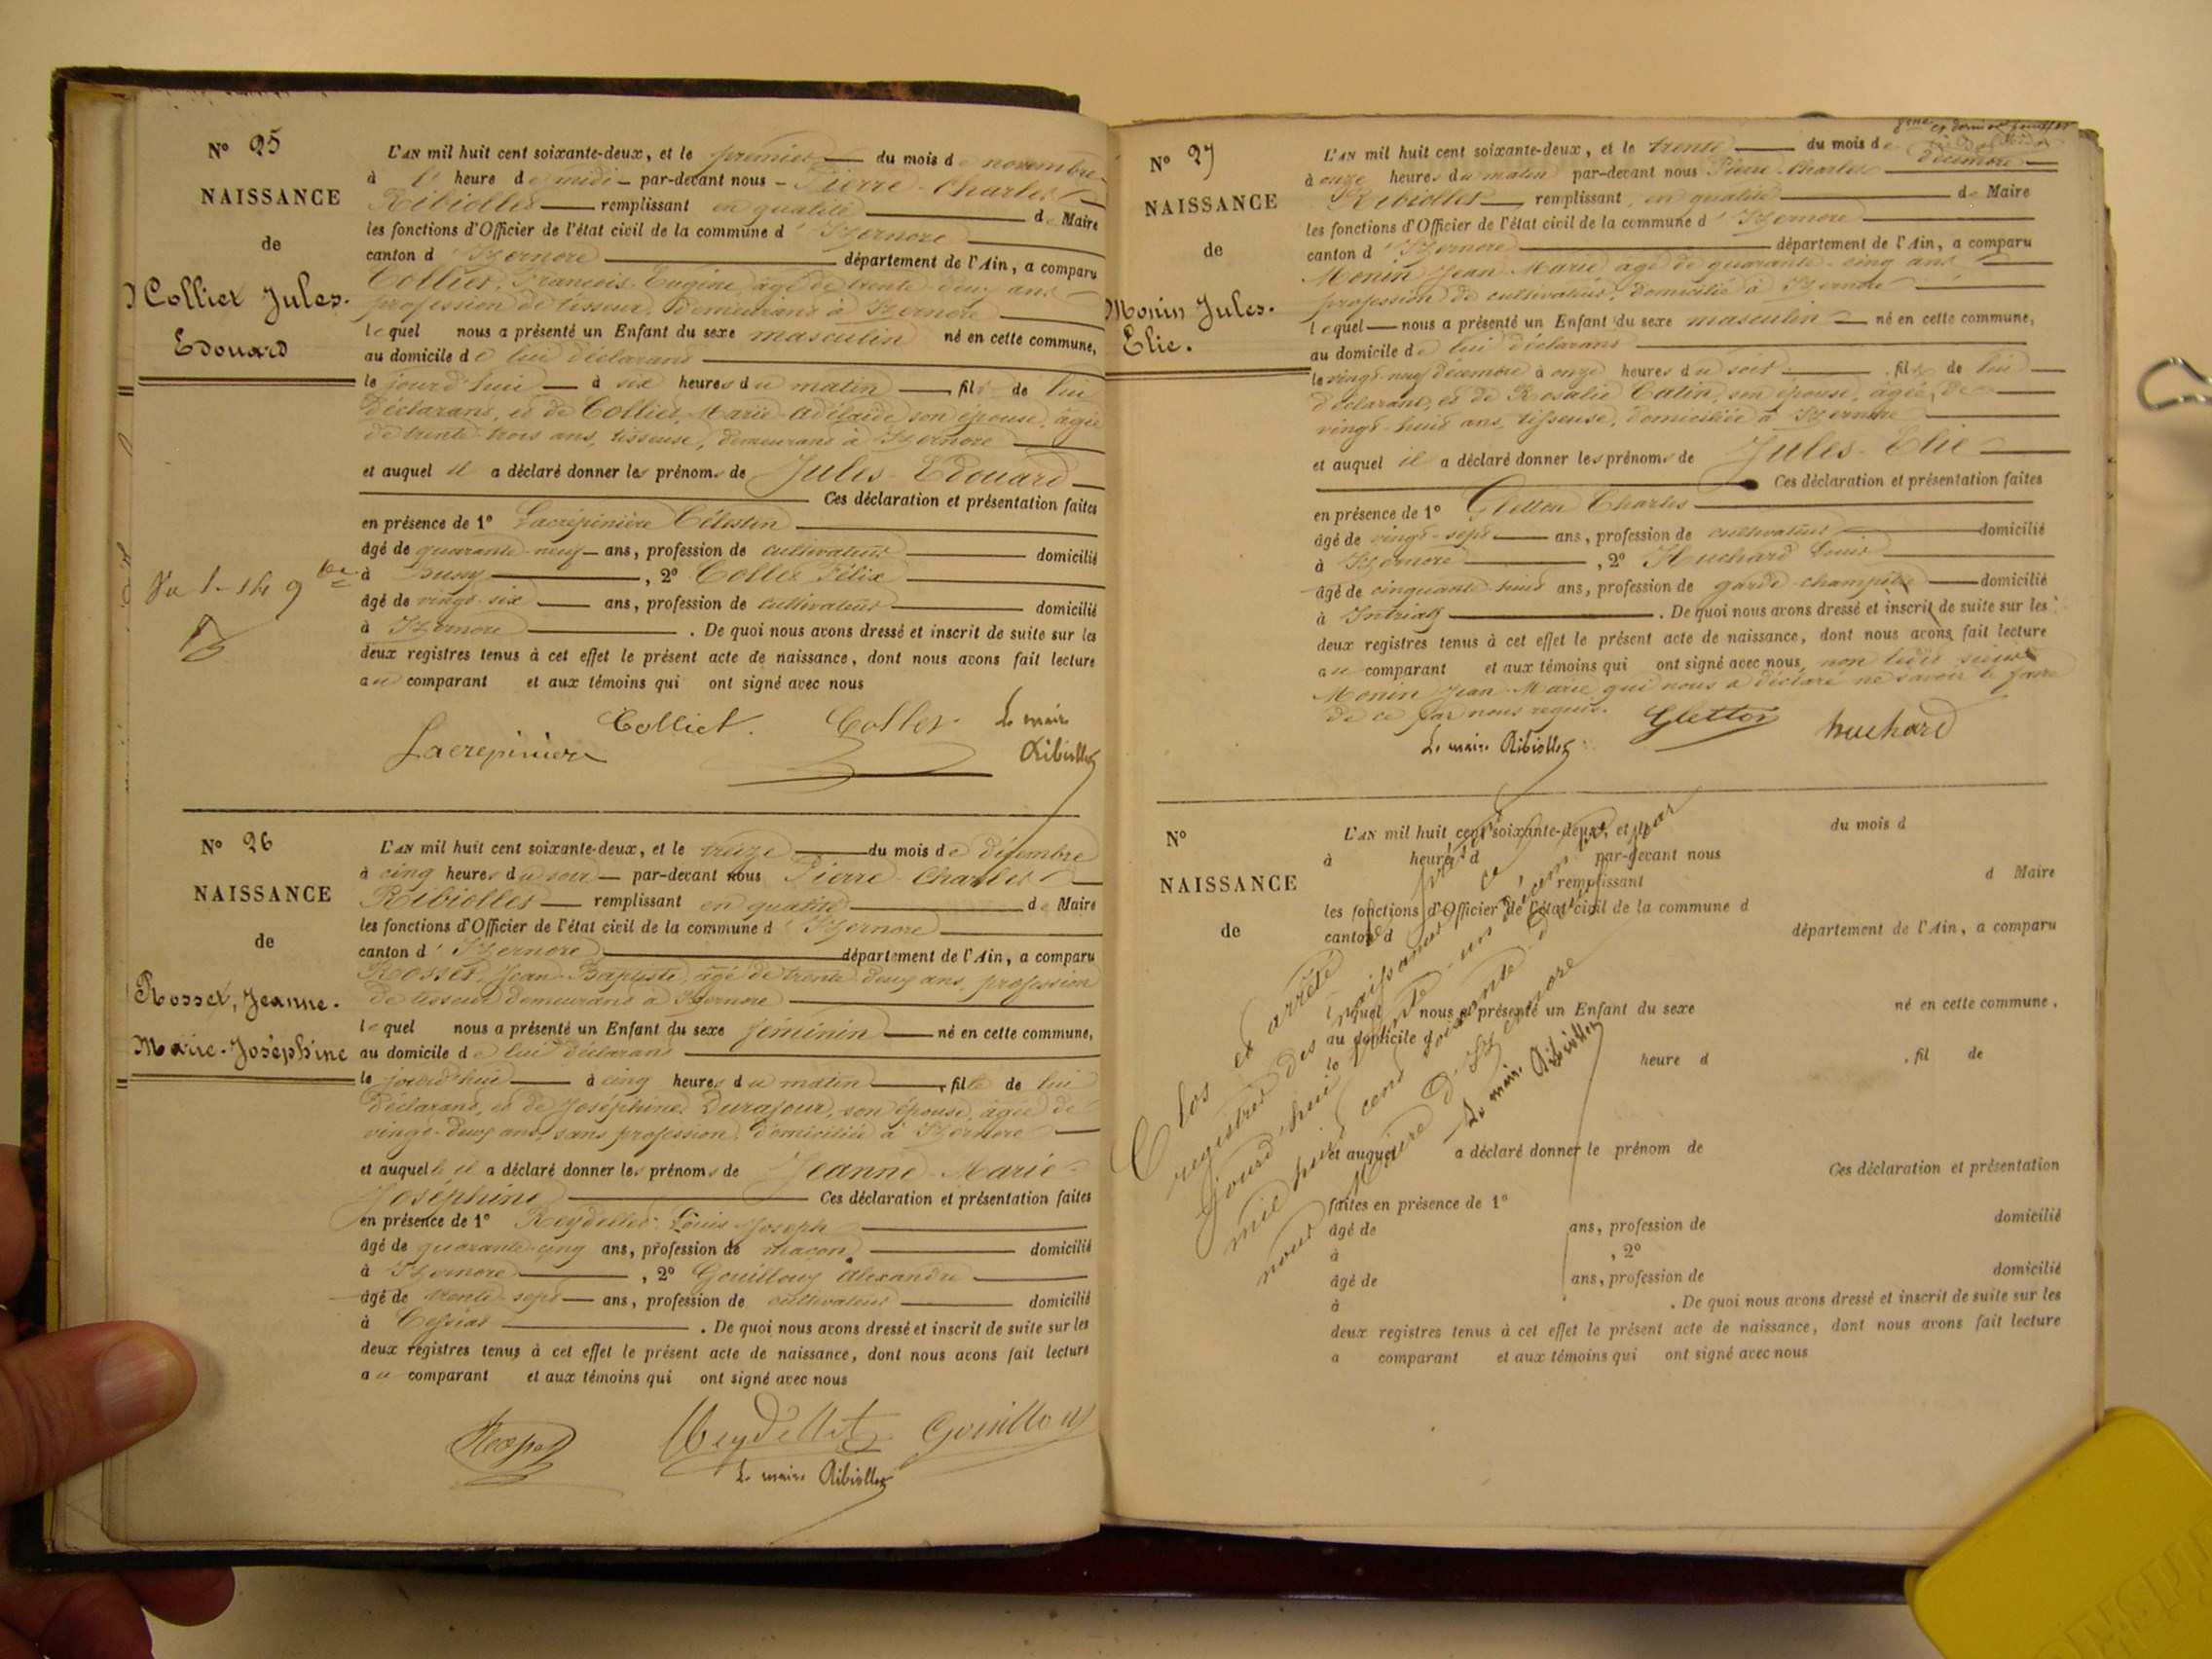 N° 25
NAISSANCE
de
Colliet Jules-
Edouard
L'AN mil huit cent soixante-deux, et le premier du mois de novembre
à heure de midi par-devant nous Pierre-Charles
Ribiollet remplissant en qualité de Maire
les fonctions d'Officier de l'état civil de la commune d'Izernore
canton d'Izernore département de l'Ain, a comparu
Colliet, François Eugène âgé de trente deux ans
profession de tisseur, demeurant à Izernore
lequel nous a présenté un Enfant du sexe masculin né en cette commune,
au domicile de lui déclarant
le jourd'hui à six heures du matin fils de lui
déclarant, et de Collier, Marie-Adélaïde son épouse, âgée
de trente-trois ans, tisseuse, demeurant à Izernore
et auquel il a déclaré donner les prénoms de Jules-Edouard
Ces déclaration et présentation faites
en présence de 1° Lacrépinière Célestin
âgé de quarante-neuf ans, profession de cultivateur domicilié
à Bussy, 2° Collet Félix
âgé de vingt-six ans, profession de cultivateur domicilié
à Izernore. De quoi nous avons dressé et inscrit de suite sur les
deux registres tenus à cet effet le présent acte de naissance, dont nous avons fait lecture
au comparant et aux témoins qui ont signé avec nous
Lacrepiniere Colliet. Collet Le maire
Ribiollet
N° 26
NAISSANCE
de
Rosset, Jeanne-
Marie-Joséphine
L'AN mil huit cent soixante-deux, et le treize du mois de décembre
à cinq heures du soir par-devant nous Pierre-Charles
Ribiollet remplissant en qualité de Maire
les fonctions d'Officier de l'état civil de la commune d'Izernore
canton d'Izernore département de l'Ain, a comparu
Rosset, Jean-Baptiste, âgé de trente deux ans, profession
de tisseur demeurant à Izernore
lequel nous a présenté un Enfant du sexe féminin né en cette commune,
au domicile de lui déclarant
le jourd'hui à cinq heures du matin, fille de lui
déclarant, et de Joséphine Durafour, son épouse, âgée de
vingt-deux ans, sans profession, domiciliée à Izernore
et auquelle il a déclaré donner les prénoms de Jeanne-Marie-
Joséphine Ces déclaration et présentation faites
en présence de 1° Reydellet Louis Joseph
âgé de quarante-cinq ans, profession de maçon domicilié
à Izernore, 2° Gouilloux Alexandre
âgé de trente-sept ans, profession de cultivateur domicilié
à Cessiat. De quoi nous avons dressé et inscrit de suite sur les
deux registres tenus à cet effet le présent acte de naissance, dont nous avons fait lecture
au comparant et aux témoins qui ont signé avec nous
Reydellet Gouilloux
Le maire Ribiollet
N° 27
NAISSANCE
de
Monin Jules-
Elie.
L'AN mil huit cent soixante-deux, et le trente du mois de
décembre
à onze heures du matin par-devant nous Pierre-Charles
Ribiollet remplissant en qualité de Maire
les fonctions d'Officier de l'état civil de la commune d'Izernore
canton d'Izernore département de l'Ain, a comparu
Monin Jean-Marie âgé de quarante-cinq ans
profession de cultivateur, domicilié à Izernore
lequel nous a présenté un Enfant du sexe masculin né en cette commune,
au domicile de lui déclarant
le vingt-neuf décembre à onze heures du soir, fils de lui
déclarant, et de Rosalie Catin, son épouse, âgée de
vingt-huit ans, tisseuse, domiciliée à Izernore
et auquel il a déclaré donner les prénoms de Jules-Elie
Ces déclaration et présentation faites
en présence de 1° Gletton Charles
âgé de vingt-sept ans, profession de cultivateur domicilié
à Izernore, 2° Huchard Louis
âgé de cinquante-huit ans, profession de garde-champêtre domicilié
à Intriat. De quoi nous avons dressé et inscrit de suite sur les
deux registres tenus à cet effet le présent acte de naissance, dont nous avons fait lecture
au comparant et aux témoins qui ont signé avec nous, non ledit
Monin Jean-Marie qui nous a déclaré ne savoir le faire
de ce par nous requis. Gletton huchard
Le maire Ribiollet
N°
NAISSANCE
de
L'AN mil huit cent soixante-deux, et le du mois d
à heure d par-devant nous
remplissant d Maire
les fonctions d'Officier de l'état civil de la commune d
canton d département de l'Ain, a comparu
lequel nous a présenté un Enfant du sexe né en cette commune,
au domicile d
le heure d, fil de
et auquel a déclaré donner le prénom de
Ces déclaration et présentation
faites en présence de 1°
âgé de ans, profession de domicilié
à, 2°
âgé de ans, profession de domicilié
à. De quoi nous avons dressé et inscrit de suite sur les
deux registres tenus à cet effet le présent acte de naissance, dont nous avons fait lecture
a comparant et aux témoins qui ont signé avec nous
Clos et arrêté
registres des naissances ce
jourd'hui trente-un décembre
mil huit cent soixante-deux par
nous Maire d'Izernore
Le maire Ribiollet